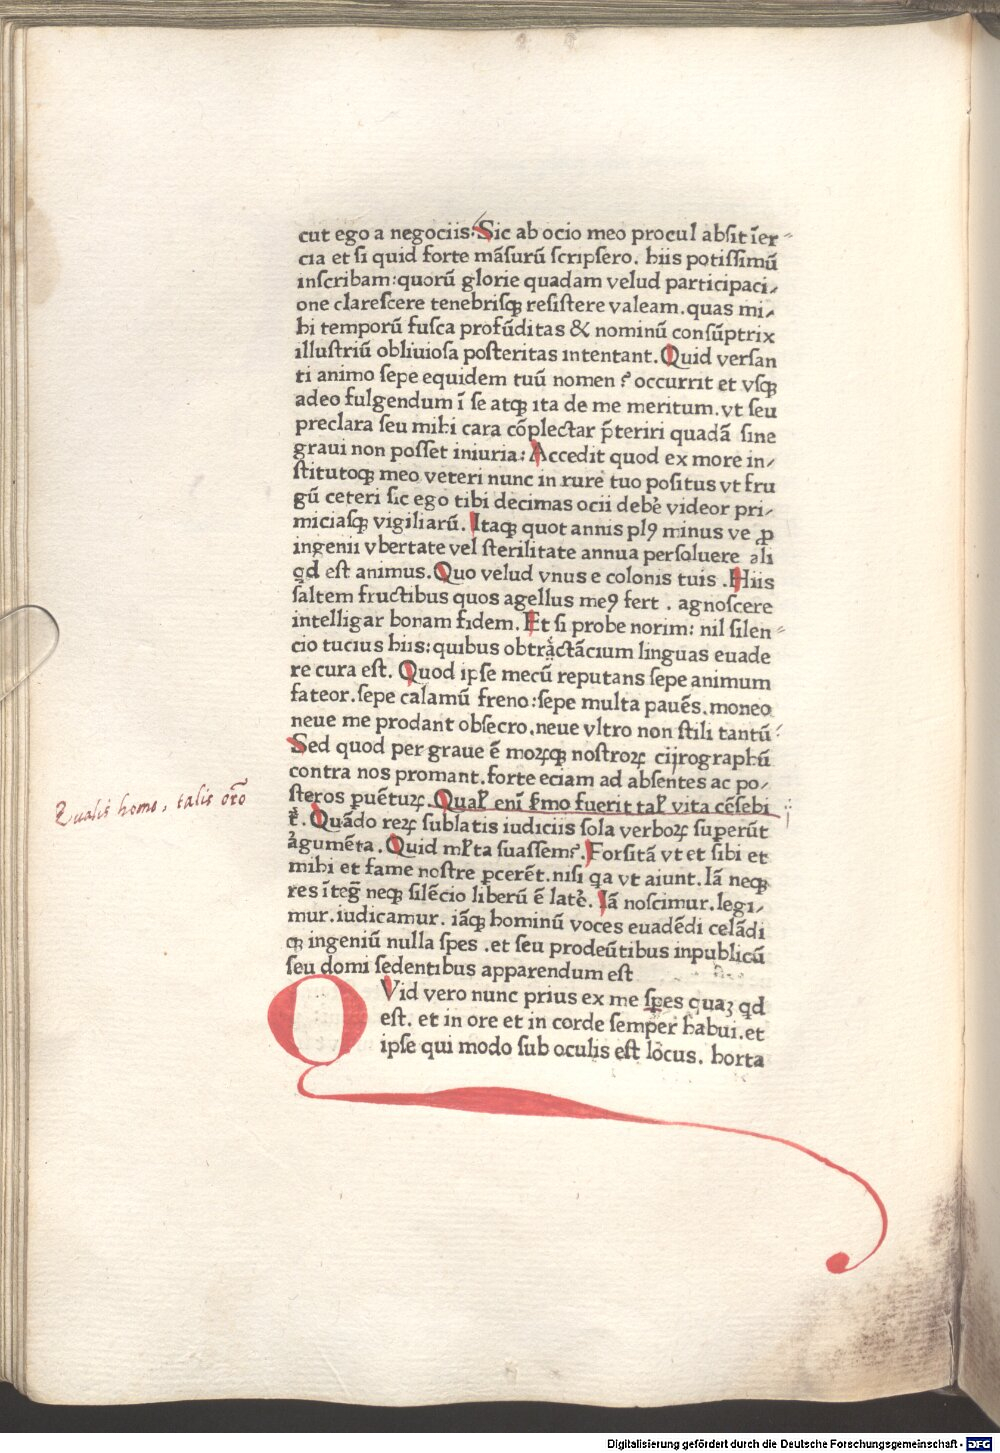 cut ego a negociis: Sic ab ocio meo procul absit īer⸗
cia et si quid forte māsurū scripsero. hiis potissimū
inscribam: quorū glorie quadam velud participaci⸗
one clarescere tenebrisqꝫ resistere valeam. quas mi⸗
hi temporū fusca profūditas & nominū consūptrix
illustriū obliuiosa posteritas intentant. Quid versan
ti animo sepe equidem tuū nomen ⸮ occurrit et vsqꝫ
adeo fulgendum ī se atqꝫ ita de me meritum. vt seu
preclara seu mihi cara cōplectar p̄teriri quadā sine
graui non posset iniuria: Accedit quod ex more in⸗
stitutoqꝫ meo veteri nunc in rure tuo positus vt fru
gū ceteri sic ego tibi decimas ocii debe᷑ videor pri⸗
miciasqꝫ vigiliarū. Itaqꝫ quot annis plꝰ minus ve ꝓ
ingenii vbertate vel sterilitate annua persoluere ali
qd est animus. Quo velud vnus e colonis tuis . Hiis
saltem fructibus quos agellus meꝰ fert . agnoscere
intelligar bonam fidem. Et si probe norim: nil silen⸗
cio tucius hiis: quibus obtrāctācium linguas euade
re cura est. Quod ipse mecū reputans sepe animum
fateor. sepe calamū freno: sepe multa pauēs. moneo
neue me prodant obsecro. neue vltro non stili tantū:
Sed quod per graue ē moꝝqꝫ nostroꝝ cijrographū
contra nos promant. forte eciam ad absentes ac po⸗
steros ꝑuētuꝝ. Qualꝭ enī s̄mo fuerit talꝭ vita cēsebi
t᷑. Quādo reꝝ sublatis iudiciis sola verboꝝ supersūt
a᷑gumēta. Quid mlꝭta suassem⸮. Forsitā vt et sibi et
mihi et fame nostre ꝑcerēt. nisi qa vt aiunt. Iā neqꝫ
res īteg̅ neqꝫ silēcio liberū ē late᷑. Iā noscimur. legi⸗
mur. iudicamur. iāqꝫ hominū voces euadēdi celādi
qꝫ ingeniū nulla spes . et seu prodeūtibus inpublicū
seu domi sedentibus apparendum est
QVid vero nunc prius ex me speres quaꝫ qd
est. et in ore et in corde semper habui. et
ipse qui modo sub oculis est locus. horta
Qualis homo, talis orō
Digitalisierung gefördert durch die Deutsche Forschungsgemeinschaft - DFG